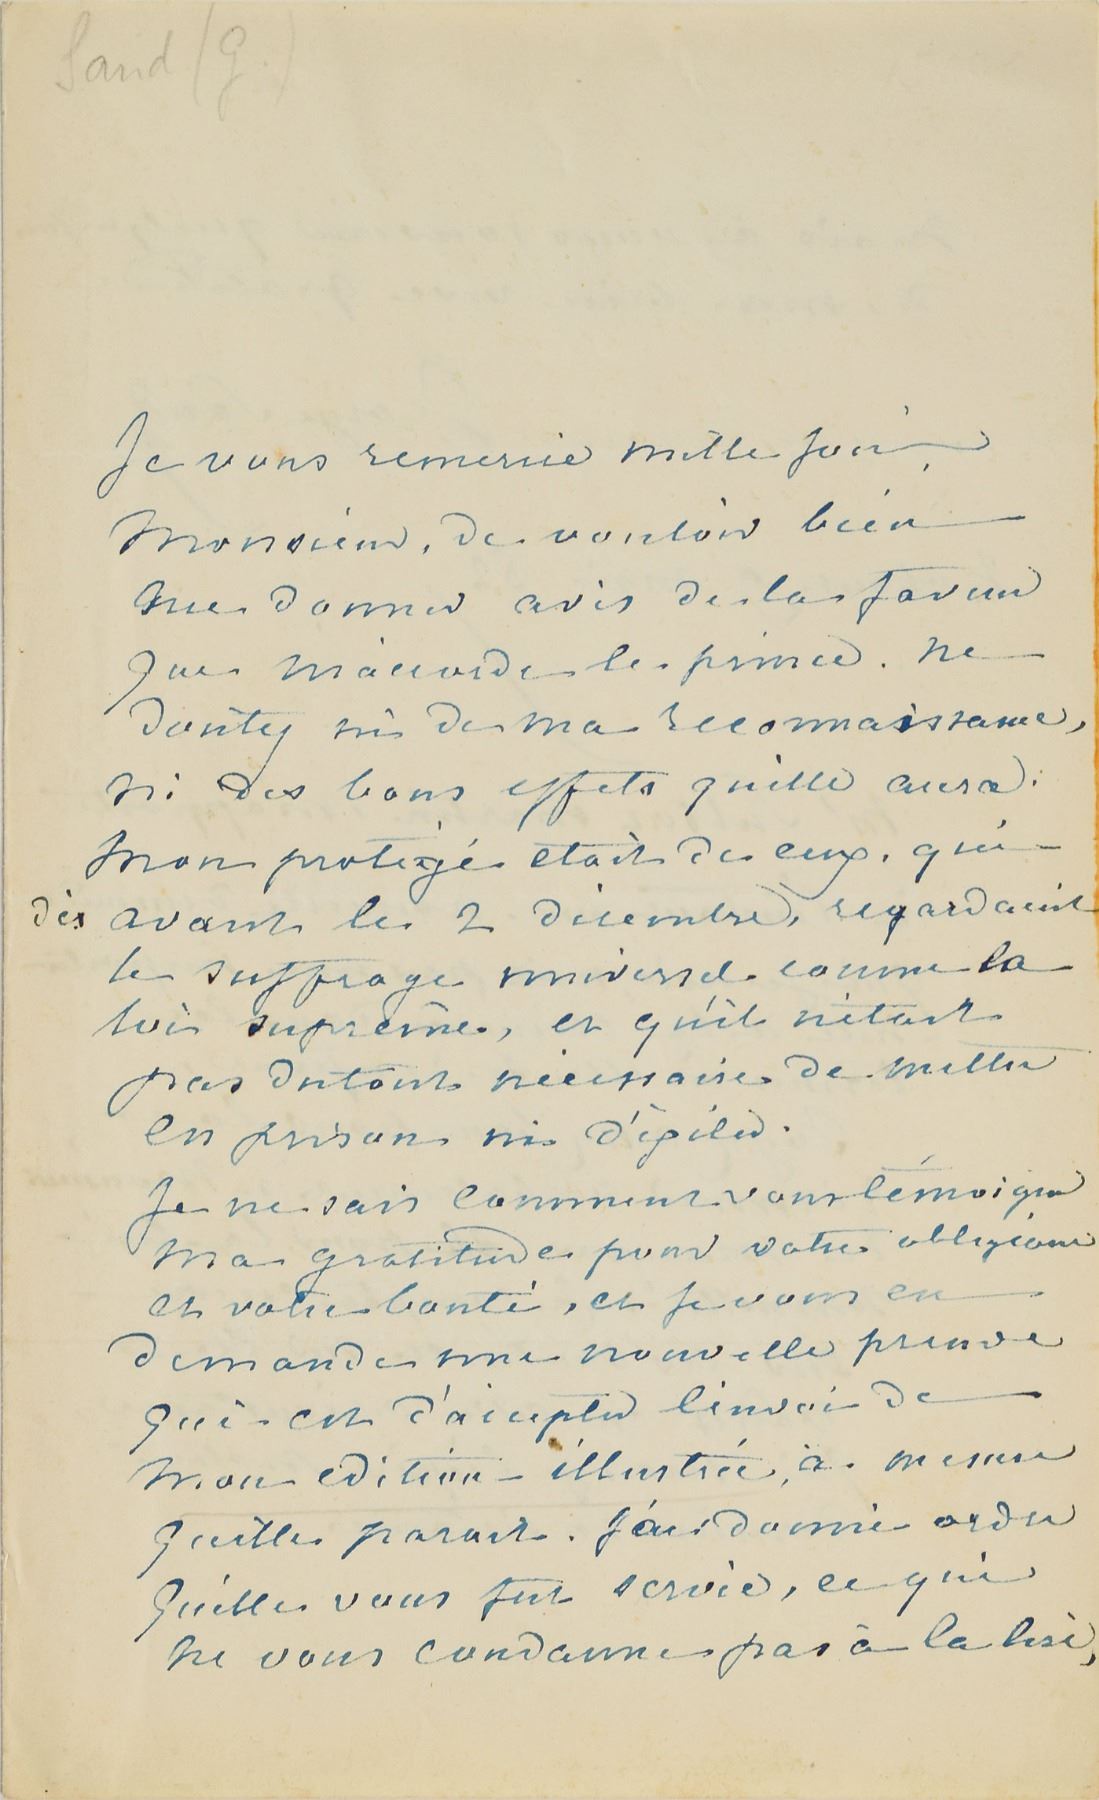 Sand (G.)
Je vous remercie mille fois,
Monsieur, de vouloir bien
me donner avis de la faveur
que m'accorde le prince. Ne
doutez ni de ma reconnaissance,
ni des bons effets qu'elle aura.
Mon protégé était de ceux, qui
dès avant le 2 décembre, regardaient
le suffrage universel comme la
loi suprême, et qu'il n'était
pas du tout nécessaire de mettre
en prison ni d'exiler.
Je ne sais comment vous témoigner
ma gratitude pour votre obligeance
et votre bonté, et je vous en
demande une nouvelle preuve
qui est d'accepter l'envoi de
mon édition illustrée, à mesure
qu'elle parait. J'ai donné ordre
qu'elle vous fut servie, ce qui
ne vous condamne pas à la lire,